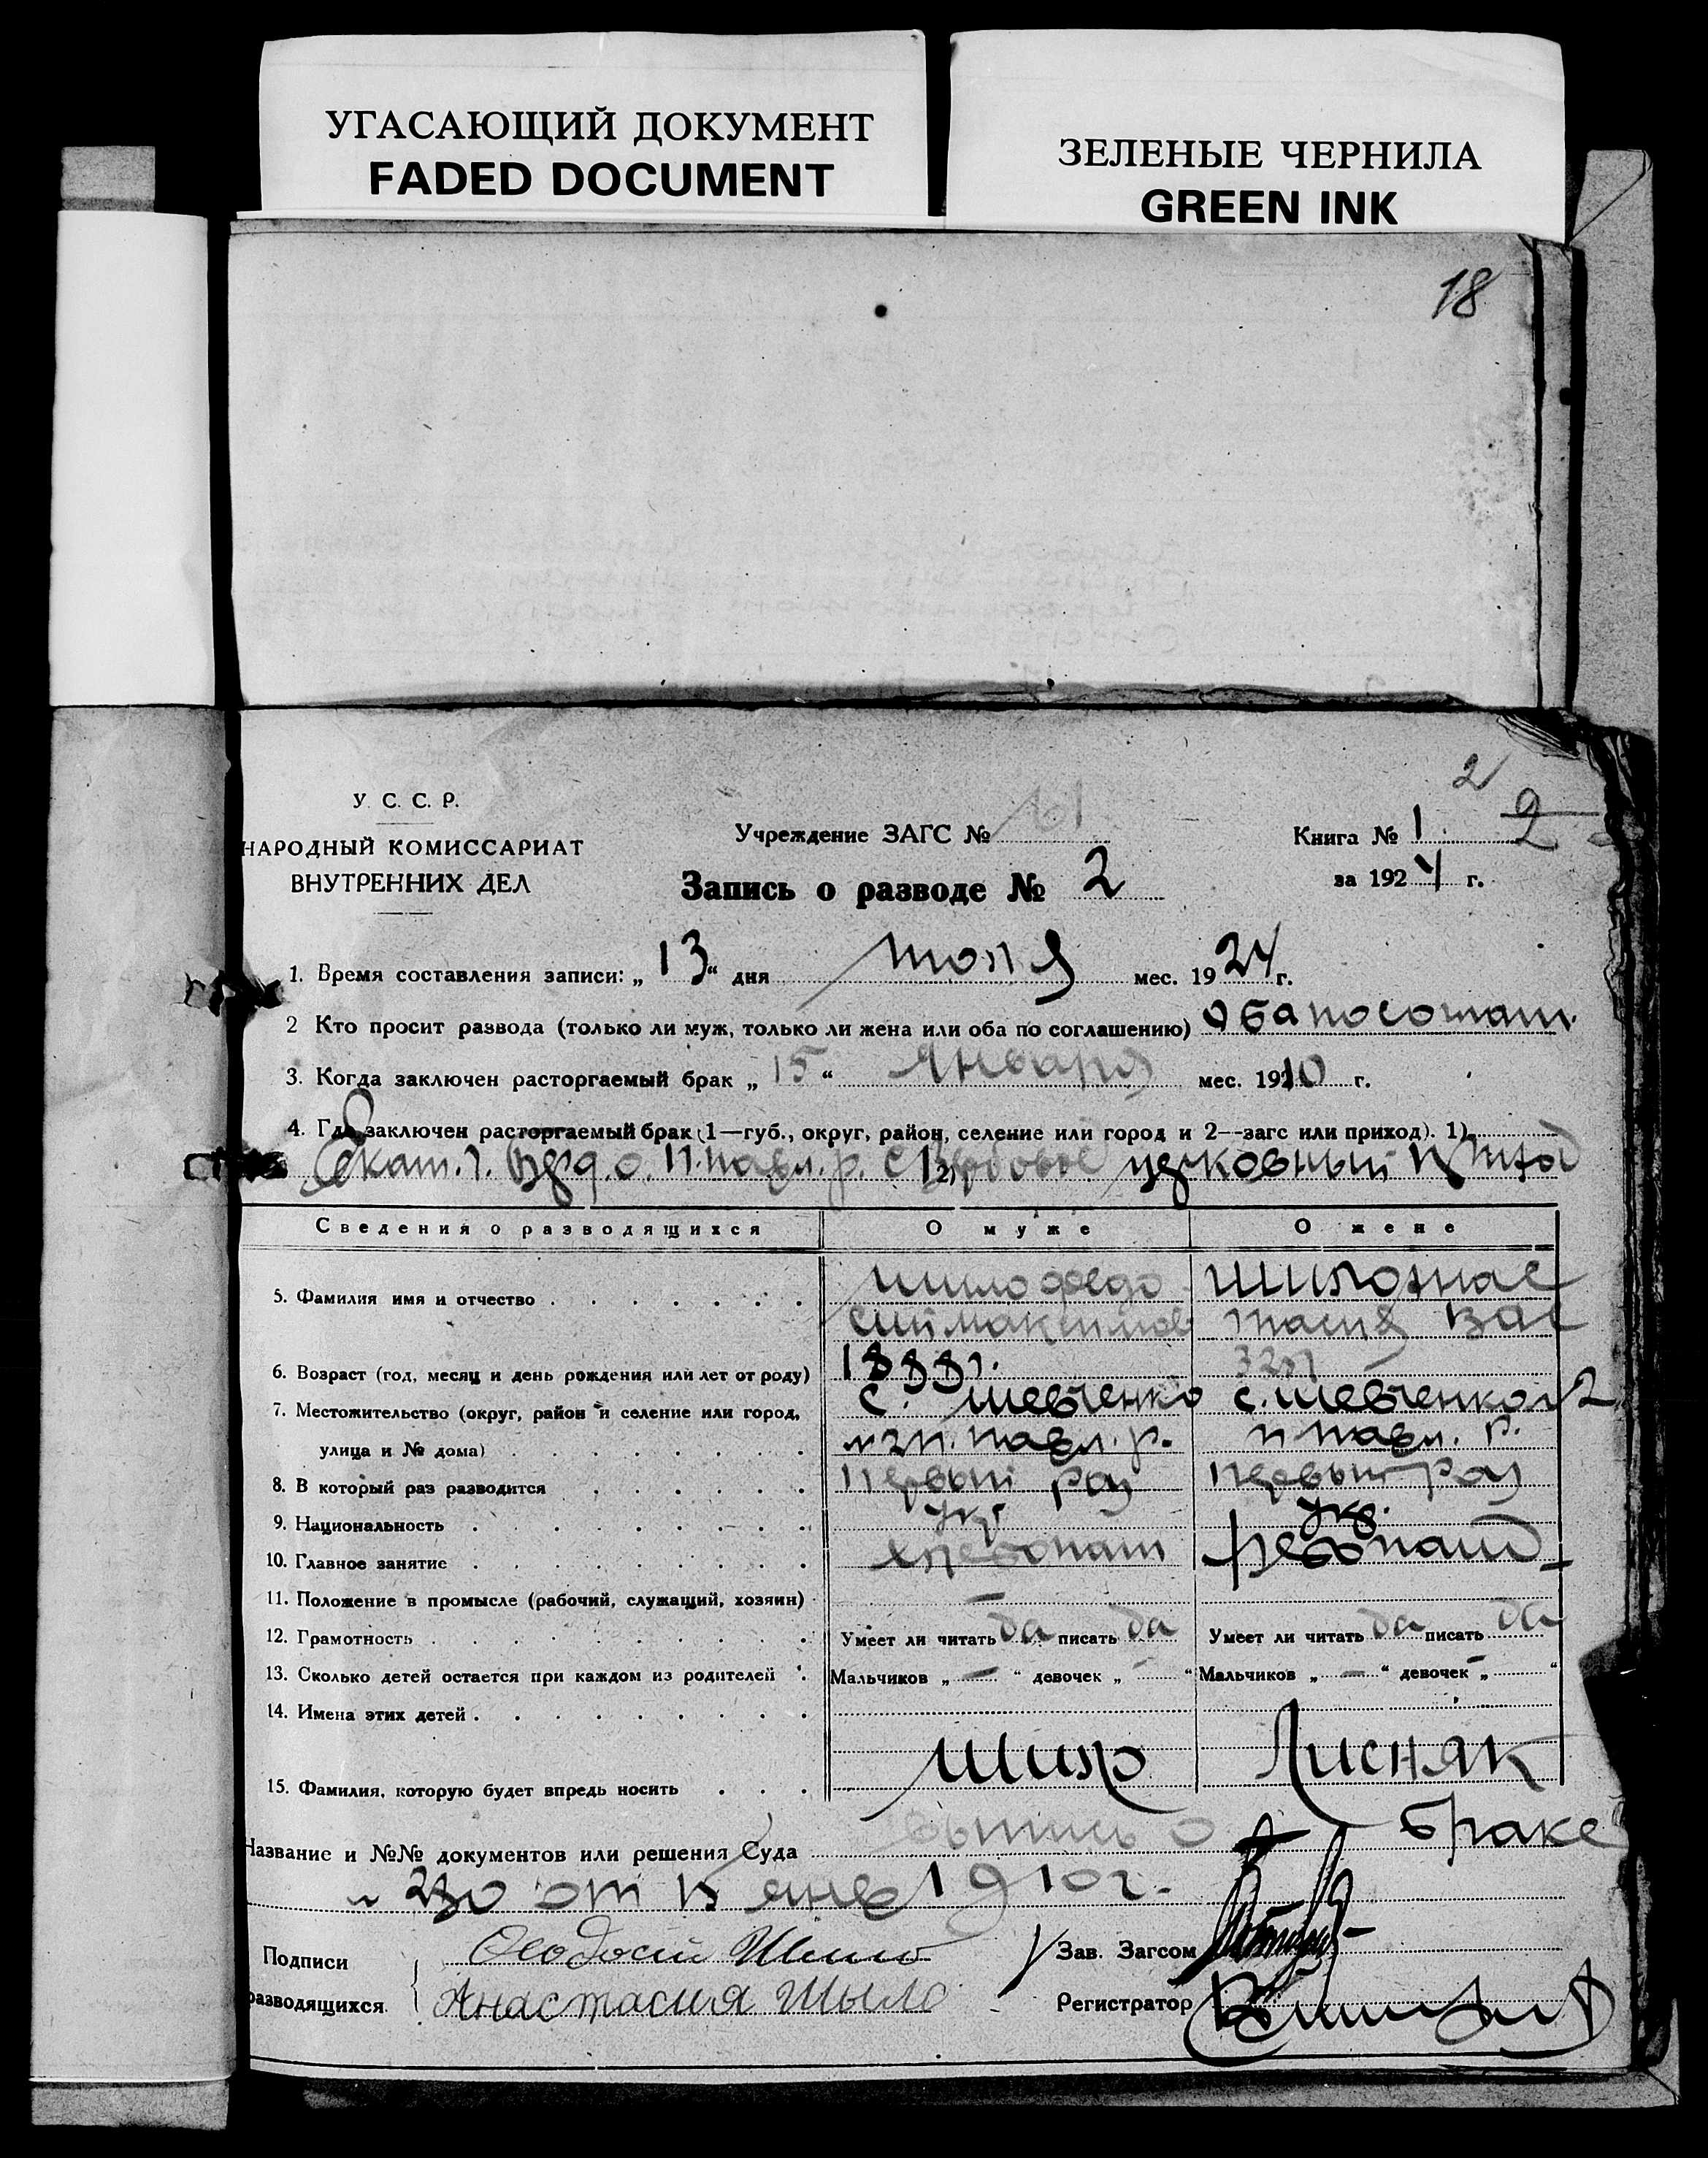 УГАСАЮЩИЙ ДОКУМЕНТ
FADED DOCUMENT
ЗЕЛЕНЫЕ ЧЕРНИЛА
GREEN INK
18
2
2
У. С. С. Р.
НАРОДНЫЙ КОМИССАРИАТ
ВНУТРЕННИХ ДЕЛ
Учреждение ЗАГС №
Книга № 1
Запись о разводе № 2
за 1924 г.
1. Время составления записи: „13“ дня июля мес. 1924 г.
2 Кто просит развода (только ли муж, только ли жена или оба по соглашению) оба по
3. Когда заключен расторгаемый брак „15“ Января мес. 1910 г.
4. Где заключен расторгаемый брак (1—губ., округ, район, селение или город и 2—загс или приход). 1)
Екат. г. п. павл. р. с 2) церковный
Сведения о разводящихся О муже О жене
5. Фамилия имя и отчество Шило Федо Шило Анас
сий Максимов тасия Вас
6. Возраст (год, месяц и день рождения или лет от роду) 1888 г. 32 л
7. Местожительство (округ, район и селение или город, с. Шевченко с. Шевченко
улица и № дома) п. павл. р. п павл. р.
8. В который раз разводится первый раз первый раз
9. Национальность Укр Укр.
10. Главное занятие хлебопаш хлебопаш
11. Положение в промысле (рабочий, служащий, хозяин) —
12. Грамотность Умеет ли читать да писать да Умеет ли читать да писать да
13. Сколько детей остается при каждом из родителей Мальчиков „—“ девочек „—“ Мальчиков „—“ девочек „—“
14. Имена этих детей
15. Фамилия, которую будет впредь носить Шило Лисняк
Название и №№ документов или решения Суда выпись о браке
от 15 янв 1910 г.
Подписи Феодосий Шило Зав. Загсом
разводящихся Анастасия Шыло Регистратор